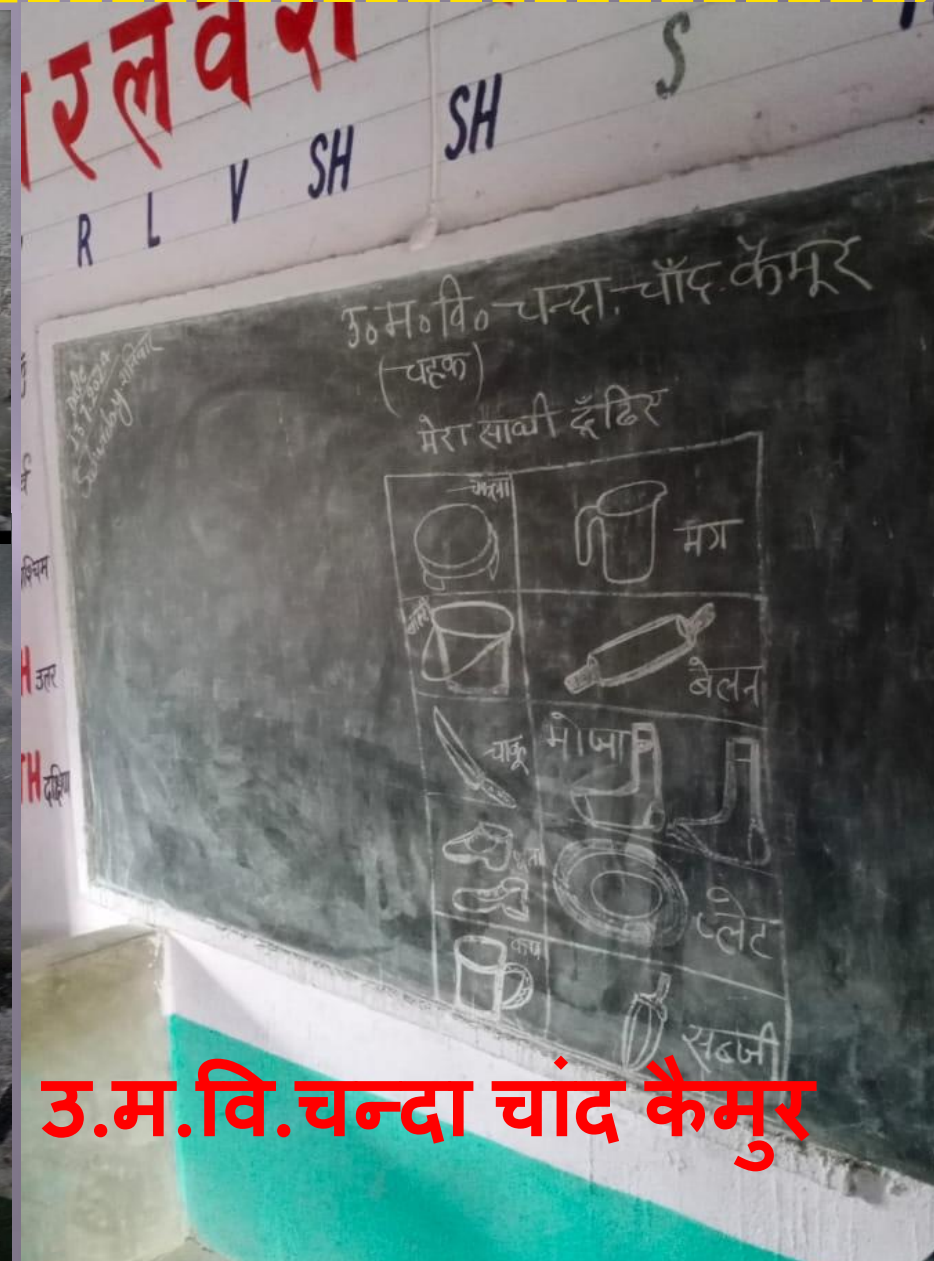 रलवश
R L V SH SH S
उ०म०वि० चन्दा, चाँद कैमूर
(चहक)
मेरा साथी ढूँढिए
चकला
मग
बेलन
चाकू
मोजा
प्लेट
कप
सब्जी
उत्तर
दक्षिण
उ.म.वि.चन्दा चांद कैमुर